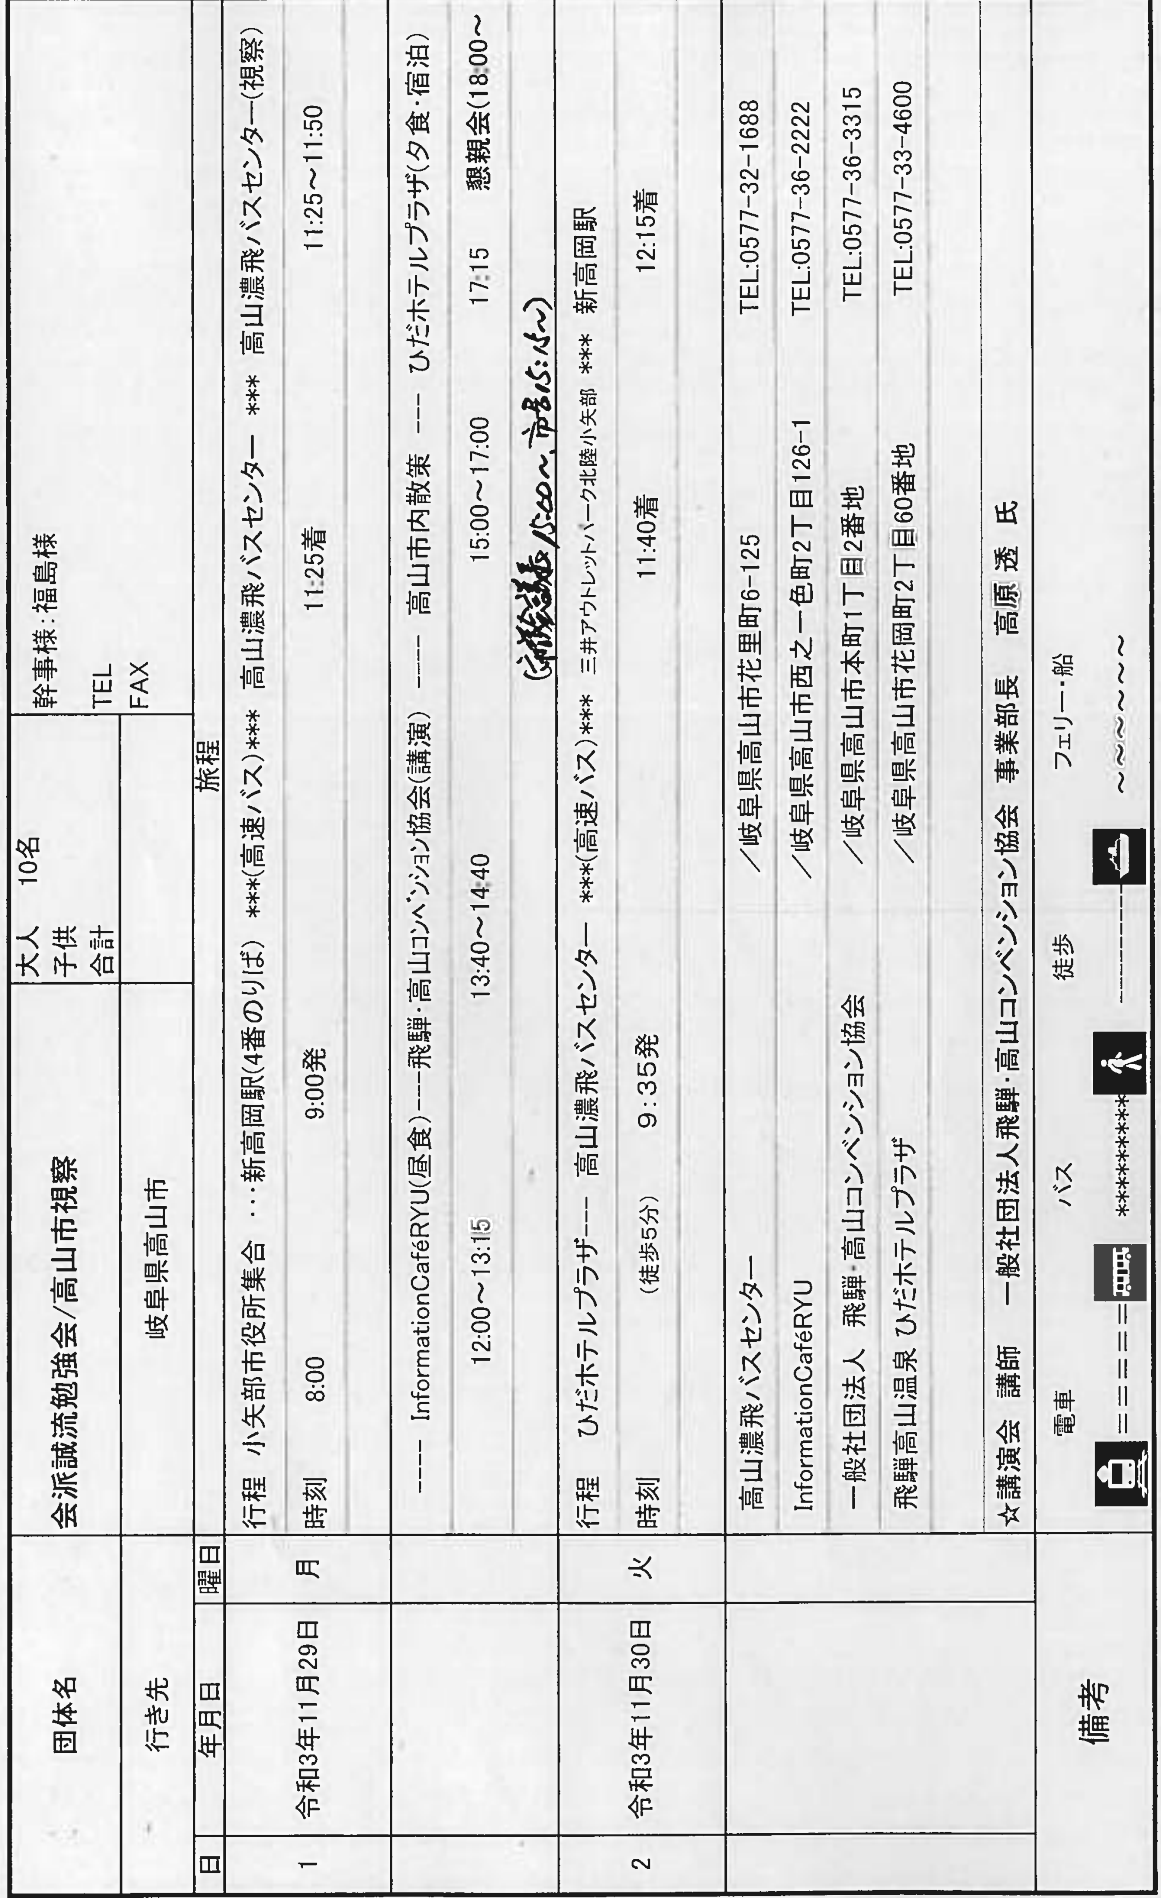 団体名 会派誠流勉強会/高山市視察 大人 10名 幹事様:福島様
子供 TEL
合計 FAX
行き先 岐阜県高山市
日 年月日 曜日 旅程
1 令和3年11月29日 月 行程 小矢部市役所集合 …新高岡駅(4番のりば) ***(高速バス)*** 高山濃飛バスセンター *** 高山濃飛バスセンター(視察)
時刻 8:00 9:00発 11:25着 11:25～11:50
---- InformationCaféRYU(昼食)----飛騨・高山コンベンション協会(講演) ---- 高山市内散策 --- ひだホテルプラザ(夕食・宿泊)
12:00～13:15 13:40～14:40 15:00～17:00 17:15 懇親会(18:00～
15:00～、市長15:15～)
2 令和3年11月30日 火 行程 ひだホテルプラザ--- 高山濃飛バスセンター ***(高速バス)*** 三井アウトレットパーク北陸小矢部 *** 新高岡駅
時刻 (徒歩5分) 9:35発 11:40着 12:15着
高山濃飛バスセンター /岐阜県高山市花里町6-125 TEL:0577-32-1688
InformationCaféRYU /岐阜県高山市西之一色町2丁目126-1 TEL:0577-36-2222
一般社団法人 飛騨・高山コンベンション協会 /岐阜県高山市本町1丁目2番地 TEL:0577-36-3315
飛騨高山温泉 ひだホテルプラザ /岐阜県高山市花岡町2丁目60番地 TEL:0577-33-4600
☆講演会 講師 一般社団法人飛騨・高山コンベンション協会 事業部長 高原 透 氏
備考 電車 バス 徒歩 フェリー・船
====== ********* --------- ～～～～～～